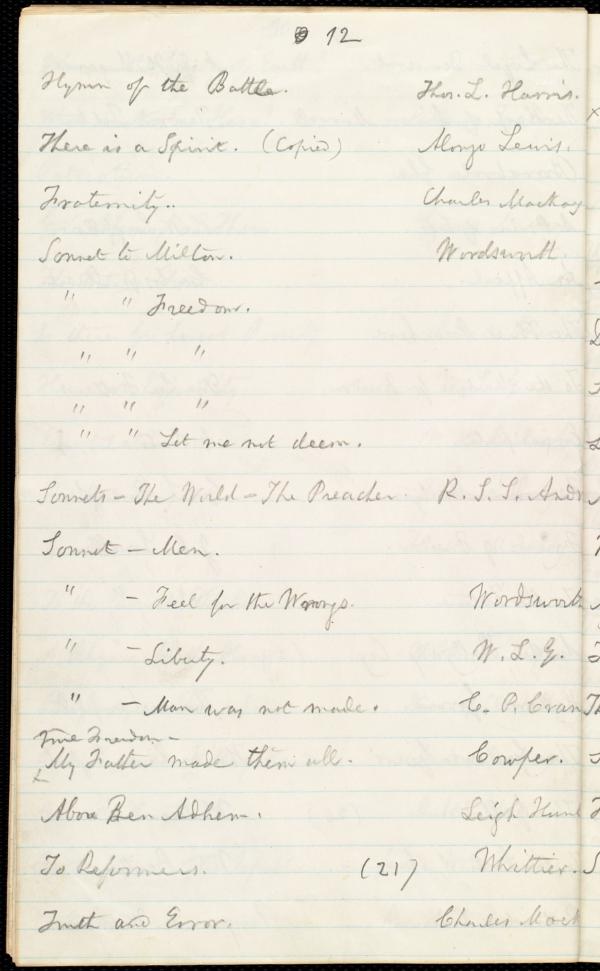 12
Hymn of the Battle. Thos. L. Harris.
There is a Spirit. (Copied) Alonzo Lewis.
Fraternity.. Charles Mackay
Sonnet to Milton. Wordsworth.
" " Freedom.
" " "
" " "
" " Let me not deem.
Sonnets – The World – The Preacher. R. S. S. And
Sonnet – Men.
" – Feel for the Wrongs. Wordsworth
" – Liberty. W. L. G.
" – Man was not made. C. P. Cran
True Freedom –
My Father made them all. Cowper.
Abou Ben Adhem. Leigh Hun
To Reformers. (21) Whittier.
Truth and Error. Charles Mack